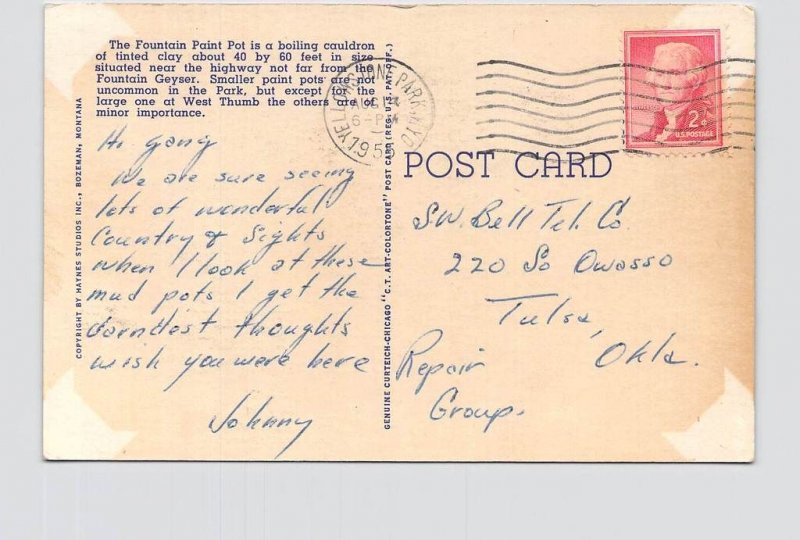 The Fountain Paint Pot is a boiling cauldron
of tinted clay about 40 by 60 feet in size
situated near the highway not far from the
Fountain Geyser. Smaller paint pots are not
uncommon in the Park, but except for the
large one at West Thumb the others are of
minor importance.
Hi gang
We are sure seeing
lots of wonderful
Country & Sights
when I look at these
mud pots I get the
darndest thoughts
wish you were here
Johnny
COPYRIGHT BY HAYNES STUDIOS INC., BOZEMAN, MONTANA
GENUINE CURTEICH-CHICAGO "C.T. ART-COLORTONE" POST CARD (REG. U.S. PAT. OFF.)
YELLOWSTONE PARK WYO
AUG
6-PM
195
2¢
U.S. POSTAGE
POST CARD
S.W. Bell Tel. Co
220 So Owasso
Tulsa,
Okla.
Repair
Group.